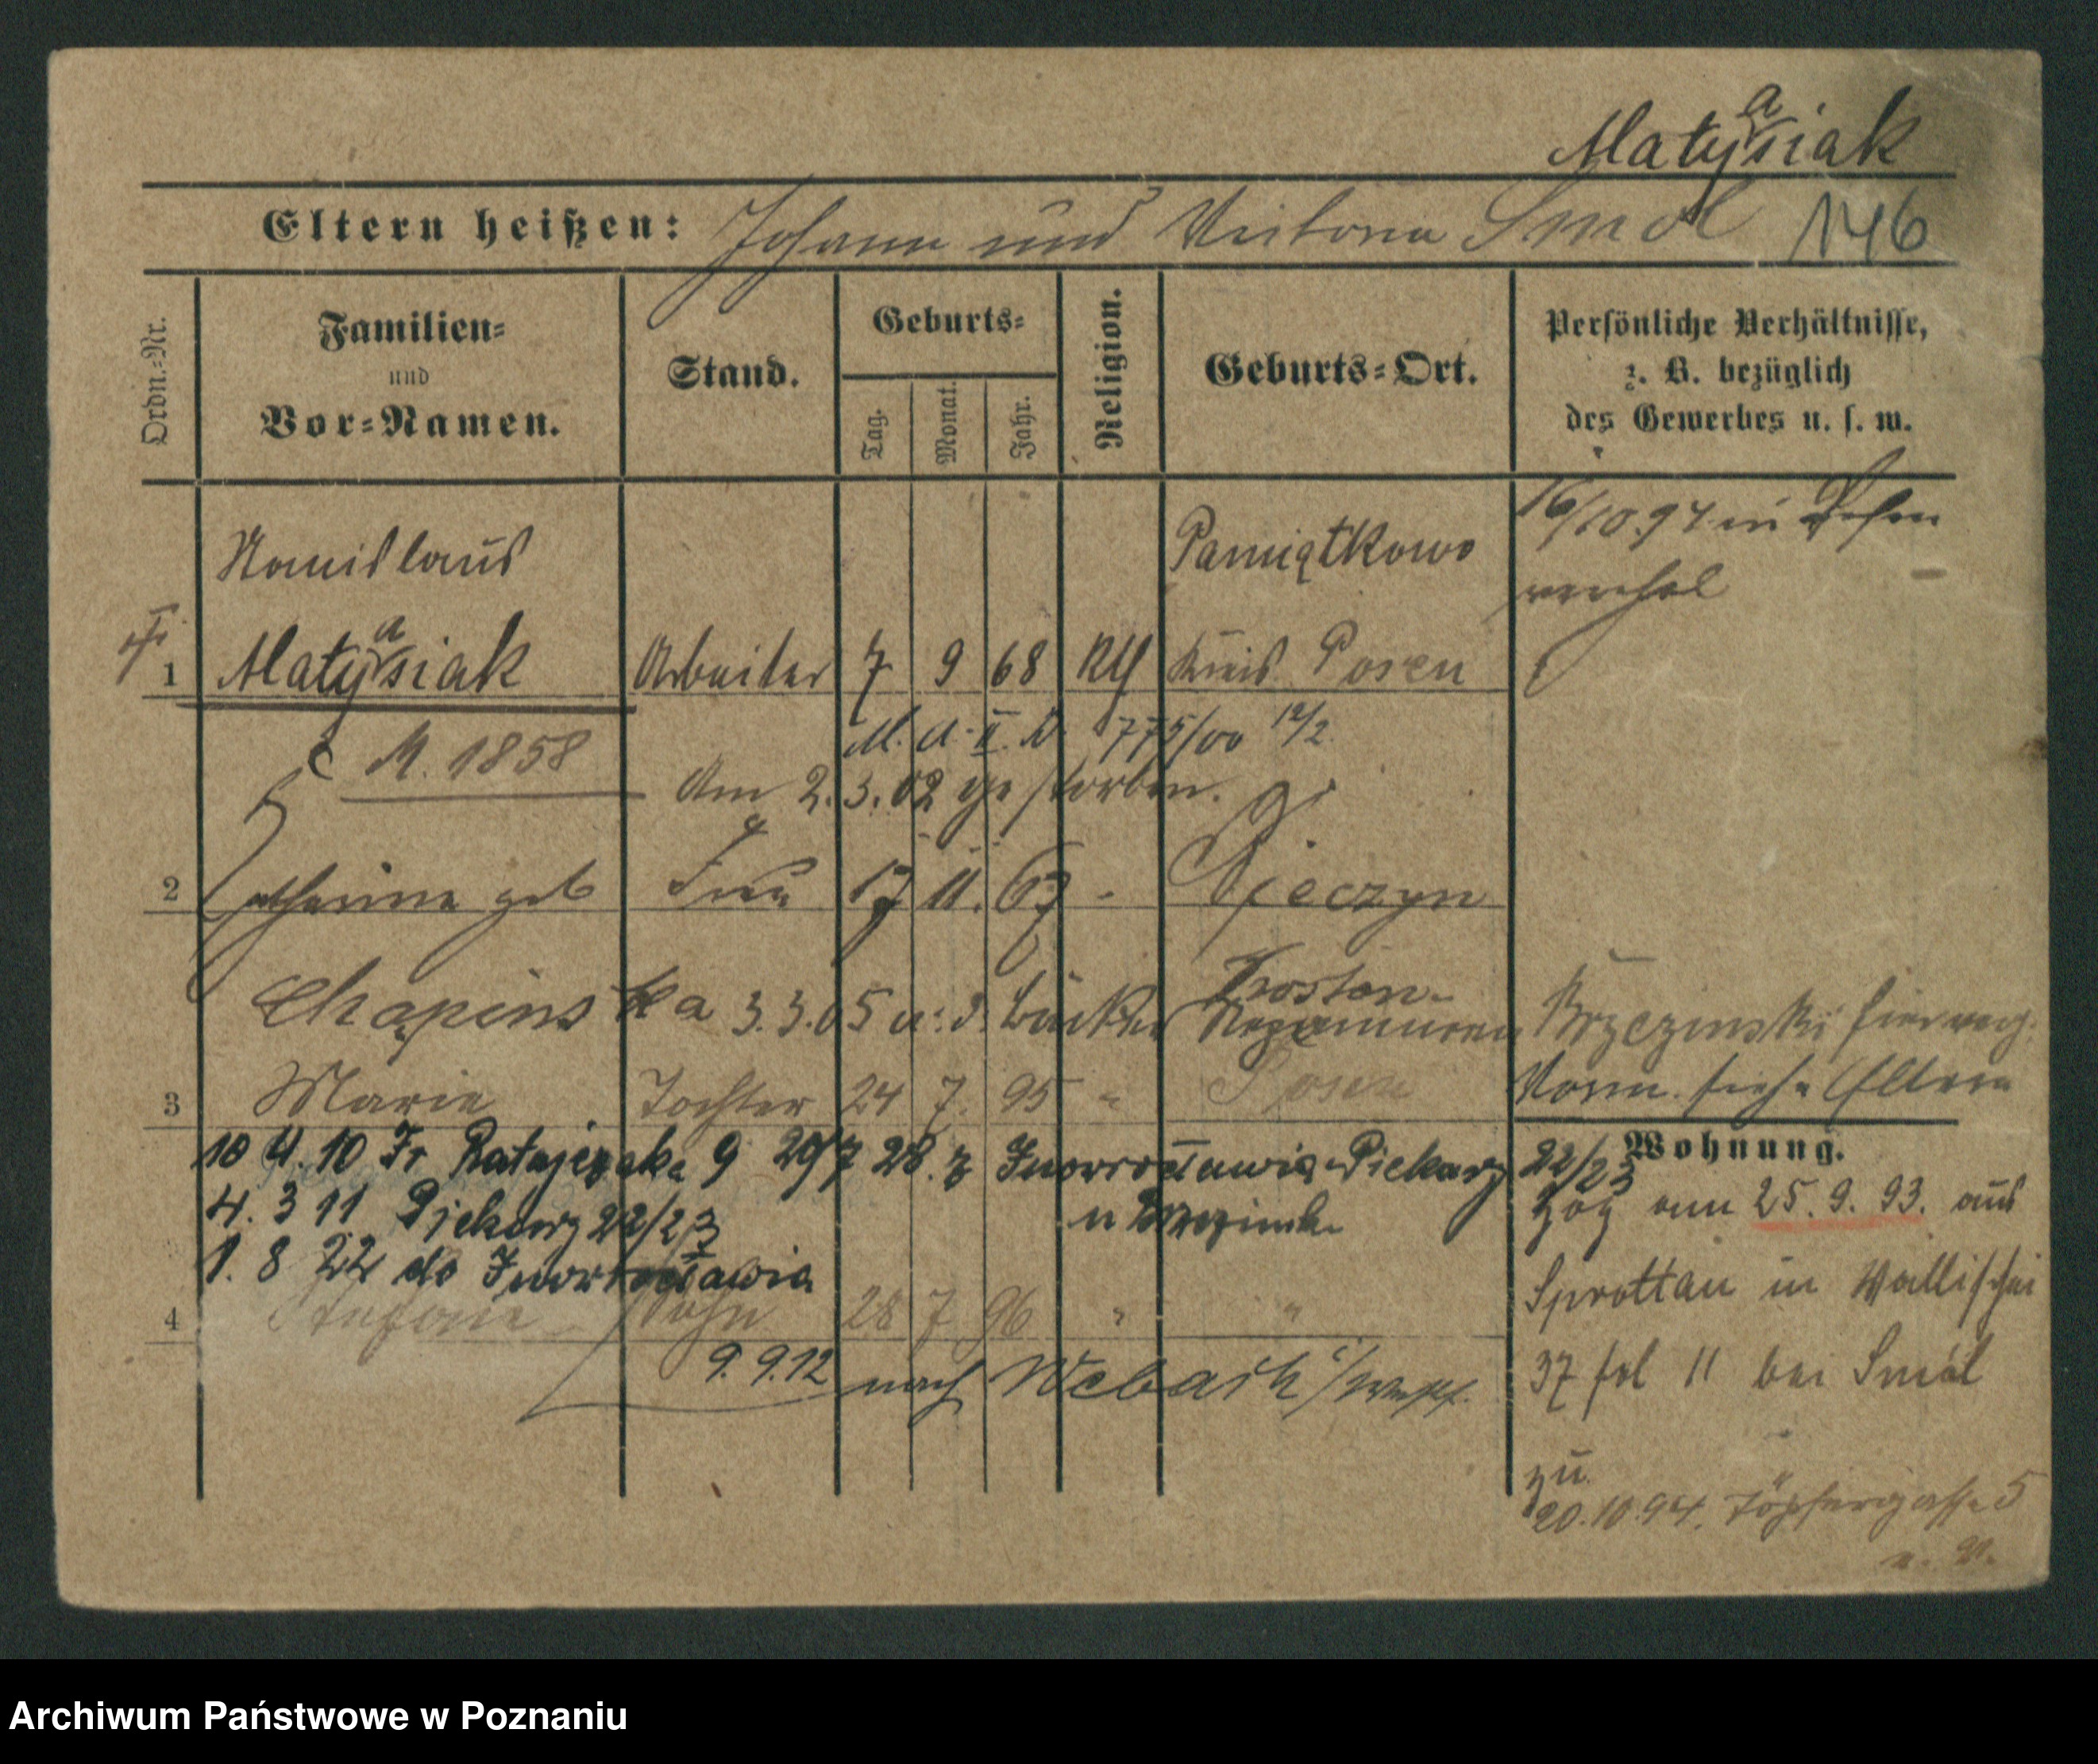 Matyasiak
Eltern heißen: Johann und Victoria Smol 146
Ordn.-Nr.
Familien-
und
Vor-Namen.
Stand.
Geburts-
Tag.
Monat.
Jahr.
Religion.
Geburts-Ort.
Persönliche Verhältnisse,
z. B. bezüglich
des Gewerbes u. s. w.
16/10.94 in Posen
Stanislaus Pamiątkowo
1 Matyasiak Arbeiter 7 9 68 Kth Kreis Posen
M. 1858 M. A. II. D. 775/00 12/2
Am 2.3.02 gestorben.
2 Catharina geb Frau 17 11. 67 - Pjeczyn
Chapinska 3.3.05 Kosten
Brzezinski
3 Marie Tochter 24 7. 95 " Posen
Vorm. siehe Eltern
10 4. 10 Fr Ratajczaka 9 29/7 28. z Inowrocławia Piekary 22/23
4. 3 11 Pjekary 22/23
1. 8 22 do Inowrocławia
4 Stefan Sohn 28 7 96 " "
9.9.12 nach
Wohnung.
Zog am 25. 9. 93. aus
Sprottau in Wallischei
37 fol 11 bei Smol
zu.
20.10.94. Töpfergasse 5
Archiwum Państwowe w Poznaniu